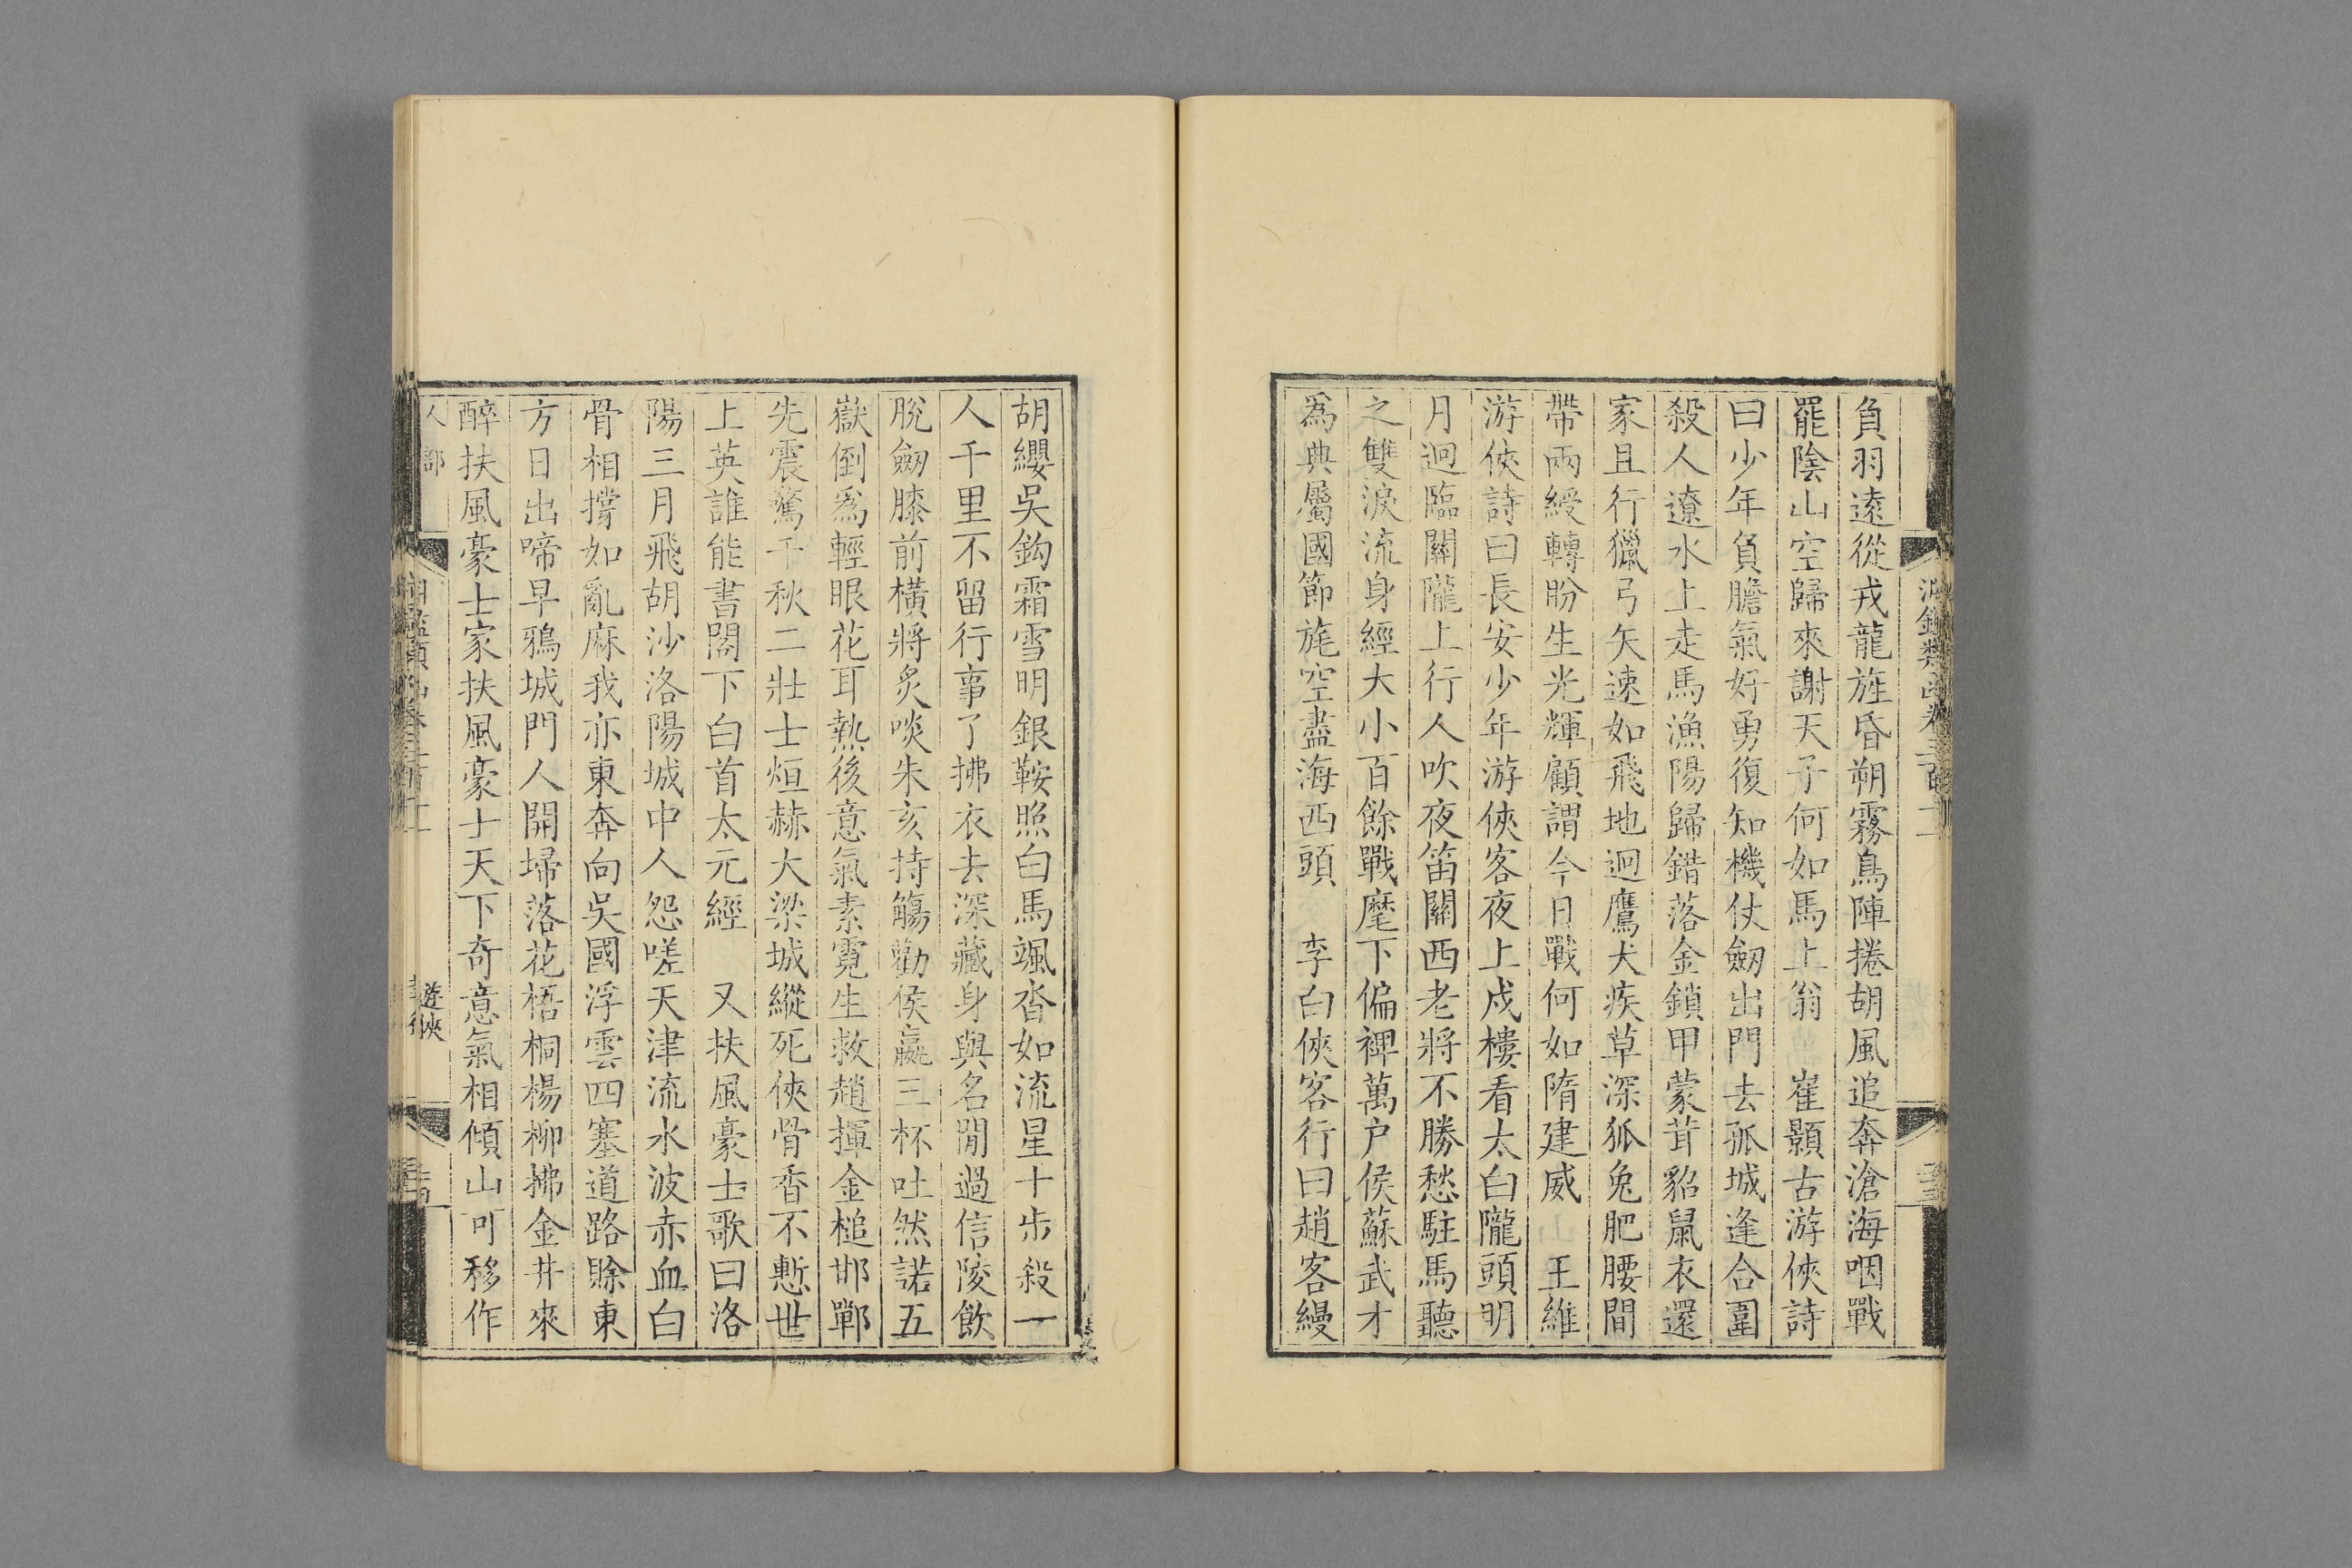 負羽遠從戎龍旌昏朔霧鳥陣捲胡風追奔滄海咽戰
罷陰山空歸來謝天子何如馬上翁　崔顥古游俠詩
曰少年負膽氣好勇復知機仗劒出門去孤城逢合圍
殺人遼水上走馬漁陽歸錯落金鎖甲蒙茸貂鼠衣還
家且行獵弓矢速如飛地迥鷹犬疾草深狐兔肥腰間
帶兩綬轉盼生光輝顧謂今日戰何如隋建威　王維
游俠詩曰長安少年游俠客夜上戍樓看太白隴頭明
月迥臨關隴上行人吹夜笛關西老將不勝愁駐馬聽
之雙淚流身經大小百餘戰麾下偏裨萬户侯蘇武才
爲典屬國節旄空盡海西頭　李白俠客行曰趙客縵
胡纓吳鈎霜雪明銀鞍照白馬颯沓如流星十步殺一
人千里不留行事了拂衣去深藏身與名閒過信陵飲
脫劒膝前橫將炙啖朱亥持觴勸侯嬴三杯吐然諾五
嶽倒爲輕眼花耳熱後意氣素霓生救趙揮金槌邯鄲
先震驚千秋二壯士烜赫大梁城縱死俠骨香不慙世
上英誰能書閣下白首太元經　又扶風豪士歌曰洛
陽三月飛胡沙洛陽城中人怨嗟天津流水波赤血白
骨相撐如亂麻我亦東奔向吳國浮雲四塞道路賖東
方日出啼早鴉城門人開埽落花梧桐楊柳拂金井來
醉扶風豪士家扶風豪士天下奇意氣相傾山可移作
人部
遊俠